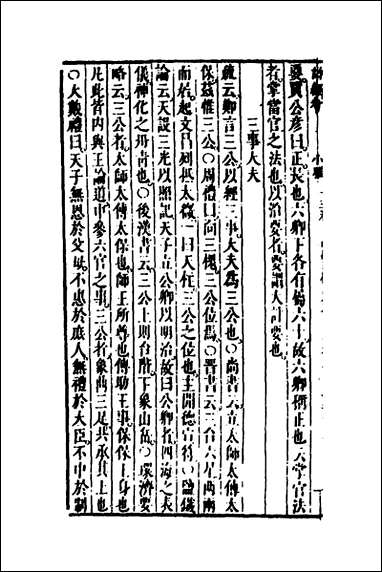 要賈公彥曰正長也六卿下各有屬六十故六卿稱正也云掌官法
者掌當官之法也以治要者要謂大計要也
三事大夫
疏云鄭言三公以經三事大夫為三公也○尚書云立太師太傅太
保茲惟三公○周禮曰面三槐三公位焉○晉書云三台六星兩兩
而居起文昌列抵太微一曰天柱三公之位也主開德宣符○鹽鐵
論云天設三光以照記天子立公卿以明治故曰公卿者四海之表
儀神化之丹青也○後漢書云三公上則台階下象山岳○環濟要
略云三公者太師太傅太保也師王所尊也傅助王事保保王身也
凡此皆內與王論道中參六官之事三公者象鼎三足共承其上也
○大戴禮曰天子無恩於父母不惠於庶人無禮於大臣不中於制